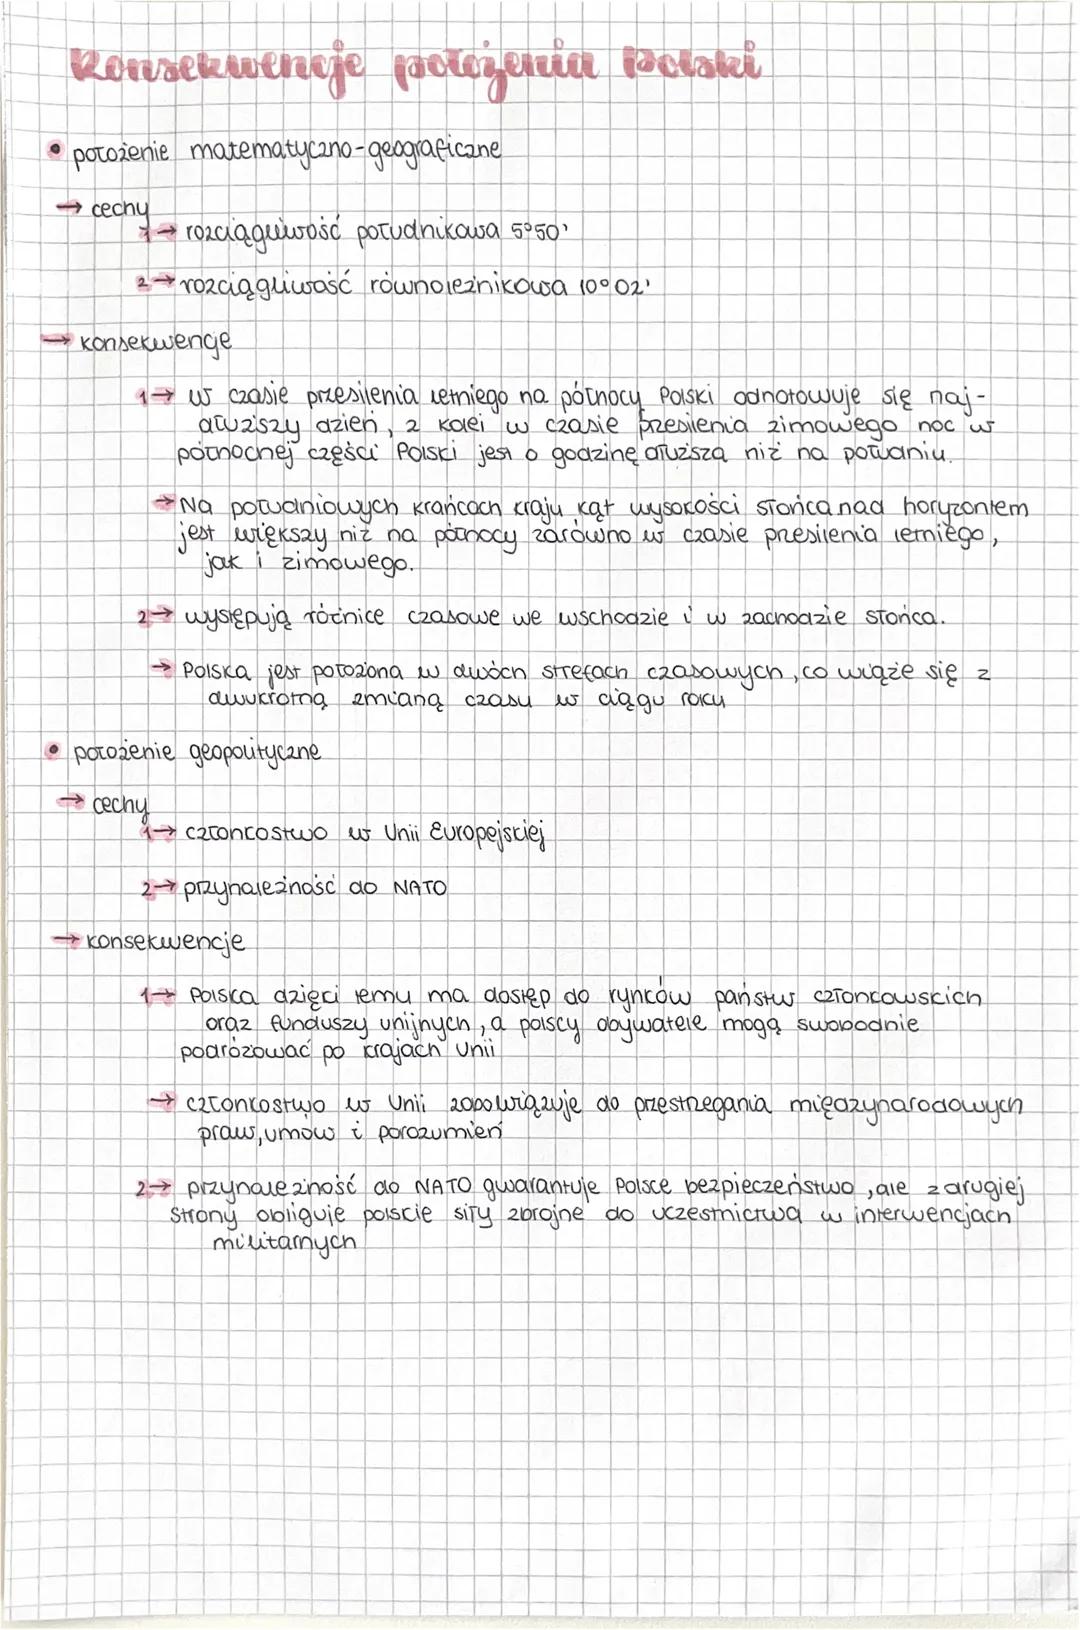 Konsekwencje położenia Polski
• położenie matematyczno-geograficzne
→ cechy
1→ rozciągliwość południkowa 5°50'
2→ rozciągliwość równoleżnikowa 10°02'
→ konsekwencje
1→ w czasie przesilenia letniego na północy Polski odnotowuje się naj-
dłuższy dzień, z kolei w czasie przesilenia zimowego noc w
północnej części Polski jest o godzinę dłuższa niż na południu.
→ Na południowych krańcach kraju kąt wysokości słońca nad horyzontem
jest większy niż na północy zarówno w czasie przesilenia letniego,
jak i zimowego.
2→ występują różnice czasowe we wschodzie i w zachodzie słońca.
→ Polska jest położona w dwóch strefach czasowych, co wiąże się z
dwukrotną zmianą czasu w ciągu roku
• położenie geopolityczne
→ cechy
1→ członkostwo w Unii Europejskiej
2→ przynależność do NATO
→ konsekwencje
1→ Polska dzięki temu ma dostęp do rynków państw członkowskich
oraz funduszy unijnych, a polscy obywatele mogą swobodnie
podróżować po krajach Unii
→ członkostwo w Unii zobowiązuje do przestrzegania międzynarodowych
praw, umów i porozumień
2→ przynależność do NATO gwarantuje Polsce bezpieczeństwo, ale z drugiej
strony obliguje polskie siły zbrojne do uczestnictwa w interwencjach
militarnych